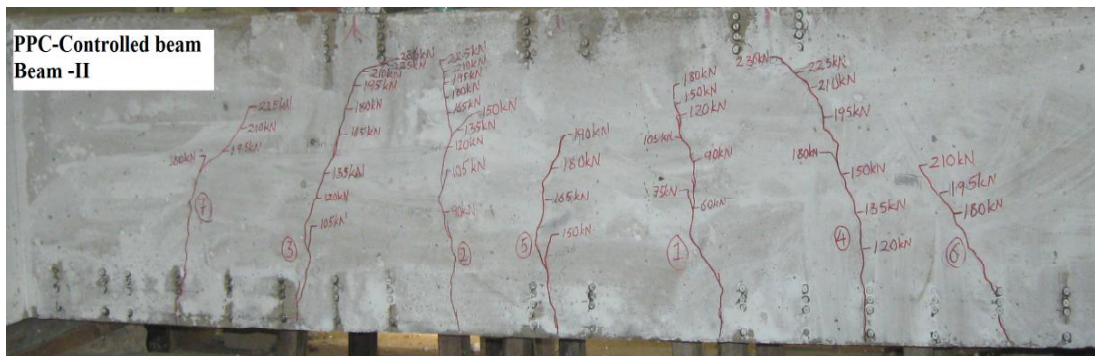 PPC-Controlled beam
Beam -II
225kN
210kN
195kN
180kN
7
225kN
210kN
195kN
180kN
165kN
135kN
120kN
105kN
3
225kN
210kN
195kN
180kN
165kN
150kN
135kN
120kN
105kN
90kN
2
190kN
180kN
165kN
150kN
5
180kN
150kN
120kN
105kN
90kN
75kN
60kN
1
230kN
225kN
210kN
195kN
180kN
150kN
135kN
120kN
4
210kN
195kN
180kN
6